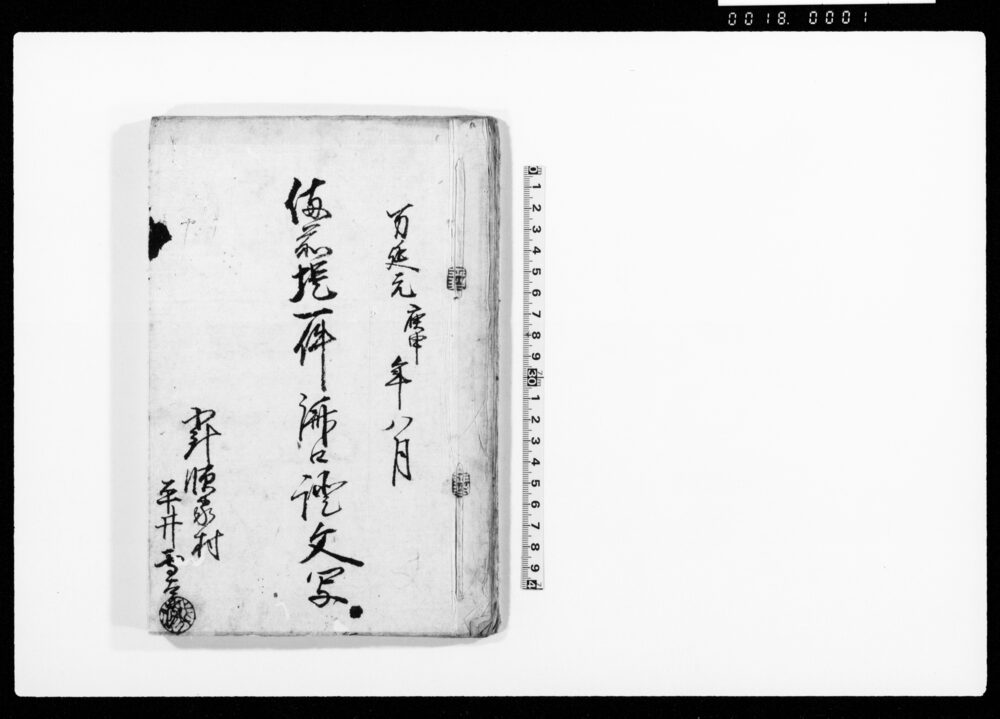 0018.0001
万延元庚申年八月
備前堤一件済口證文写
小針領家村
平井
0 1 2 3 4 5 6 7 8 9 30 1 2 3 4 5 6 7 8 9 4